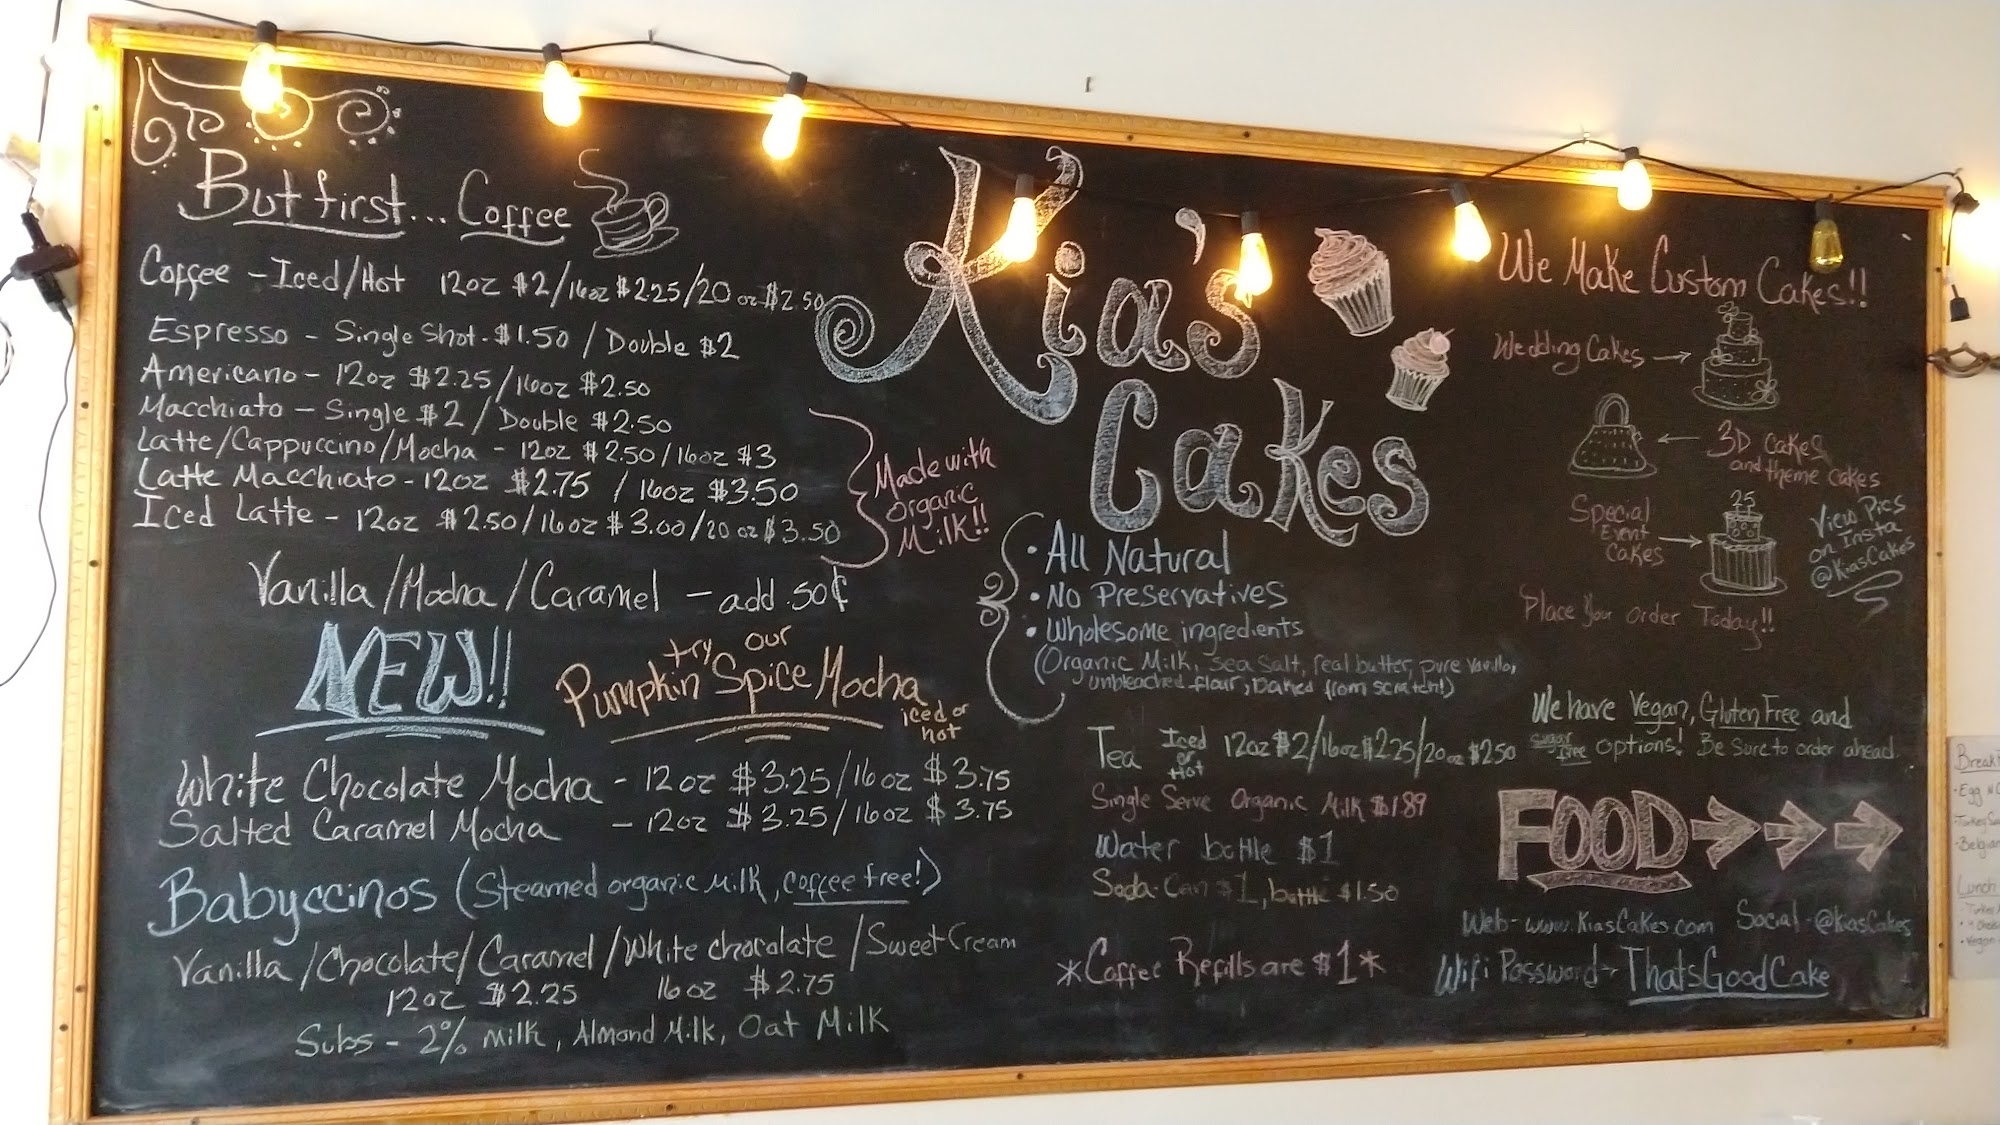 But first... Coffee
Coffee - Iced/Hot 12oz $2/16oz $2.25/20 oz $2.50
Espresso - Single Shot - $1.50 / Double $2
Americano - 12oz $2.25/16oz $2.50
Macchiato - Single $2 / Double $2.50
Latte/Cappuccino/Mocha - 12oz $2.50/16oz $3
Latte Macchiato - 12oz $2.75 / 16oz $3.50
Iced Latte - 12oz $2.50/16oz $3.00/20 oz $3.50
Made with
organic
Milk!!
Vanilla/Mocha/Caramel - add .50¢
NEW!!
try our
Pumpkin Spice Mocha
iced or
hot
White Chocolate Mocha - 12oz $3.25/16oz $3.75
Salted Caramel Mocha - 12oz $3.25/16oz $3.75
Babyccinos (Steamed organic milk, coffee free!)
Vanilla/Chocolate/Caramel/White chocolate/Sweet Cream
12oz $2.25 16oz $2.75
Subs - 2% milk, Almond Milk, Oat Milk
Kia's
Cakes
• All Natural
• No Preservatives
• Wholesome ingredients
(Organic Milk, sea salt, real butter, pure vanilla,
unbleached flour, baked from scratch!)
Tea Iced or Hot 12oz $2/16oz $2.25/20oz $2.50
Single Serve Organic Milk $1.89
Water bottle $1
Soda-Can $1, bottle $1.50
*Coffee Refills are $1*
We Make Custom Cakes!!
Wedding Cakes
3D cakes
and theme cakes
Special
Event
Cakes
25
View Pics
on Insta
@KiasCakes
Place Your order Today!!
We have Vegan, Gluten Free and
sugar free options! Be sure to order ahead.
FOOD
Web - www.KiasCakes.com Social - @KiasCakes
Wifi Password - ThatsGoodCake
Breakf
• Egg n C
• Turkey Sau
• Belgian
Lunch
• Turkey
• Vegan